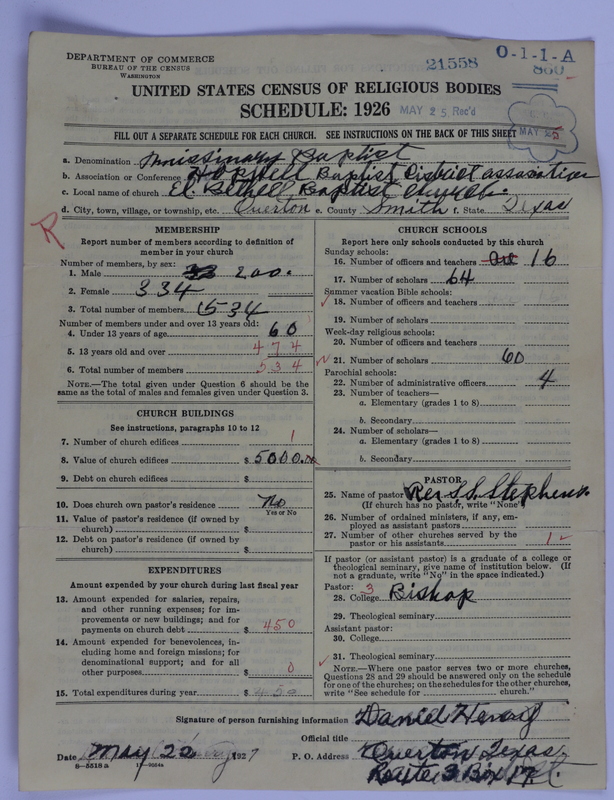 DEPARTMENT OF COMMERCE
BUREAU OF THE CENSUS
WASHINGTON
21558
O-1-1-A
860
UNITED STATES CENSUS OF RELIGIOUS BODIES
SCHEDULE: 1926
MAY 25 Rec'd
FILL OUT A SEPARATE SCHEDULE FOR EACH CHURCH. SEE INSTRUCTIONS ON THE BACK OF THIS SHEET
MAY 25
a. Denomination Missinary Baptist
b. Association or Conference Hopwell Baptist District association
c. Local name of church El Bethell Baptist Church.
d. City, town, village, or township, etc. Overton e. County Smith f. State Texas
R
MEMBERSHIP
Report number of members according to definition of
member in your church
Number of members, by sex:
1. Male 200.
2. Female 334
3. Total number of members 534
Number of members under and over 13 years old:
4. Under 13 years of age 60
5. 13 years old and over 474
6. Total number of members 534
NOTE.—The total given under Question 6 should be the
same as the total of males and females given under Question 3.
CHURCH BUILDINGS
See instructions, paragraphs 10 to 12
7. Number of church edifices 1
8. Value of church edifices $ 5000.00
9. Debt on church edifices $
10. Does church own pastor's residence No
Yes or No
11. Value of pastor's residence (if owned by
church) $
12. Debt on pastor's residence (if owned by
church) $
EXPENDITURES
Amount expended by your church during last fiscal year
13. Amount expended for salaries, repairs,
and other running expenses; for im-
provements or new buildings; and for
payments on church debt $ 450
14. Amount expended for benevolences, in-
cluding home and foreign missions; for
denominational support; and for all
other purposes $ 0
15. Total expenditures during year $ 450
CHURCH SCHOOLS
Report here only schools conducted by this church
Sunday schools:
16. Number of officers and teachers 16
17. Number of scholars 64
Summer vacation Bible schools:
18. Number of officers and teachers
19. Number of scholars
Week-day religious schools:
20. Number of officers and teachers
21. Number of scholars 60
Parochial schools:
22. Number of administrative officers 4
23. Number of teachers—
a. Elementary (grades 1 to 8)
b. Secondary
24. Number of scholars—
a. Elementary (grades 1 to 8)
b. Secondary
PASTOR
25. Name of pastor Rev S.S. Stephens
(If church has no pastor, write "None")
26. Number of ordained ministers, if any, em-
ployed as assistant pastors
27. Number of other churches served by the
pastor or his assistants 1
If pastor (or assistant pastor) is a graduate of a college or
theological seminary, give name of institution below. (If
not a graduate, write "No" in the space indicated.)
Pastor: 3
28. College Bishop
29. Theological seminary
Assistant pastor:
30. College
31. Theological seminary
NOTE.—Where one pastor serves two or more churches,
Questions 28 and 29 should be answered only on the schedule
for one of the churches; on the schedules for the other churches,
write "See schedule for church."
Signature of person furnishing information Daniel Henry
Official title
Date May 22 1927 P. O. Address Overton Texas.
Route 3 Box 17
8-5518 a